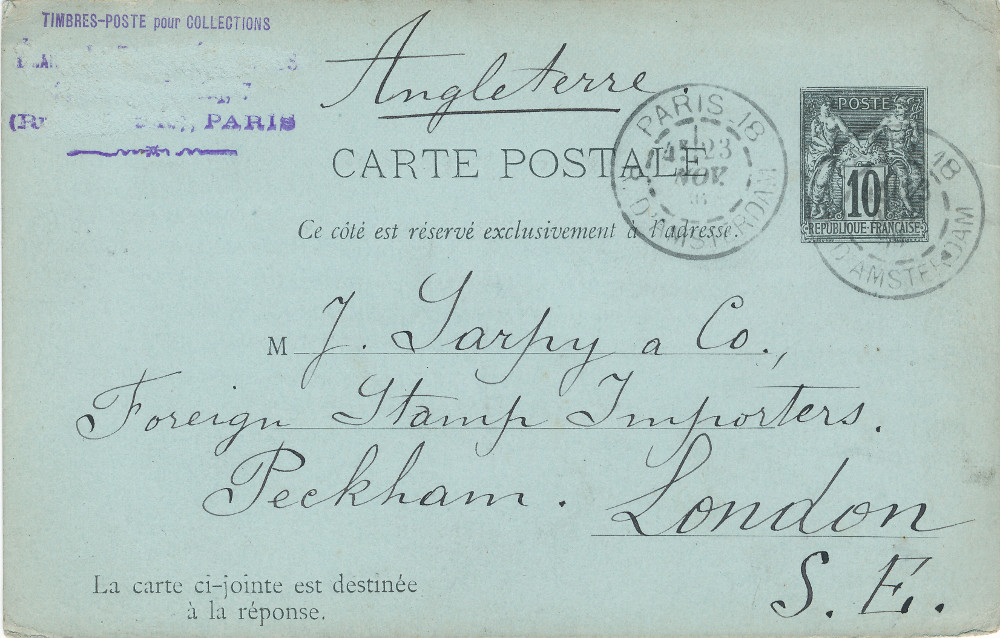 TIMBRES-POSTE pour COLLECTIONS
PARIS
Angleterre.
CARTE POSTALE.
Ce côté est réservé exclusivement à l'adresse.
PARIS-18
1
23
NOV.
D'AMSTERDAM
POSTE
10
REPUBLIQUE FRANÇAISE
18
D'AMSTERDAM
M J. Sarpy & Co.,
Foreign Stamp Importers.
Peckham. London
S. E.
La carte ci-jointe est destinée
à la réponse.